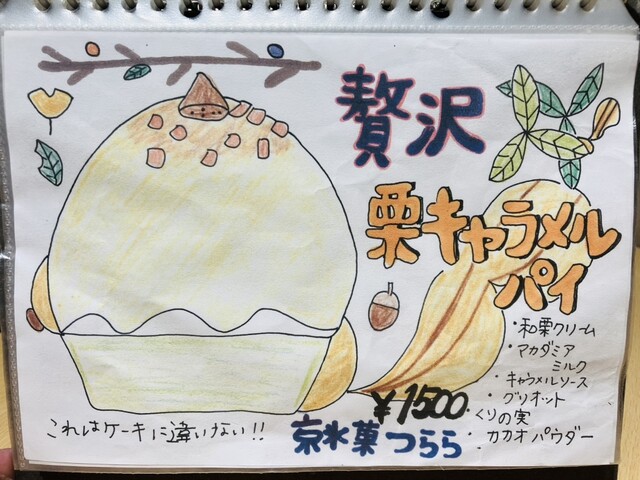 贅沢
栗キャラメル
パイ
・和栗クリーム
・マカダミア
ミルク
・キャラメルソース
・グリオット
・くりの実
・カカオパウダー
¥1500.
これはケーキに違いない!!
京氷菓つらら